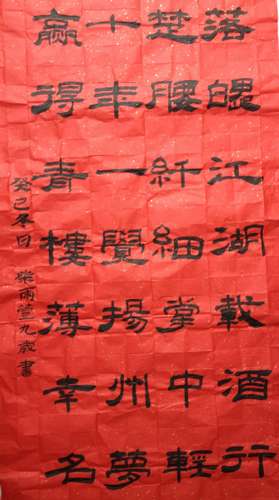 落魄江湖載酒行
楚腰纤細掌中輕
十年一覺揚州夢
贏得青樓薄幸名
癸巳冬日 柴雨萱九歲書